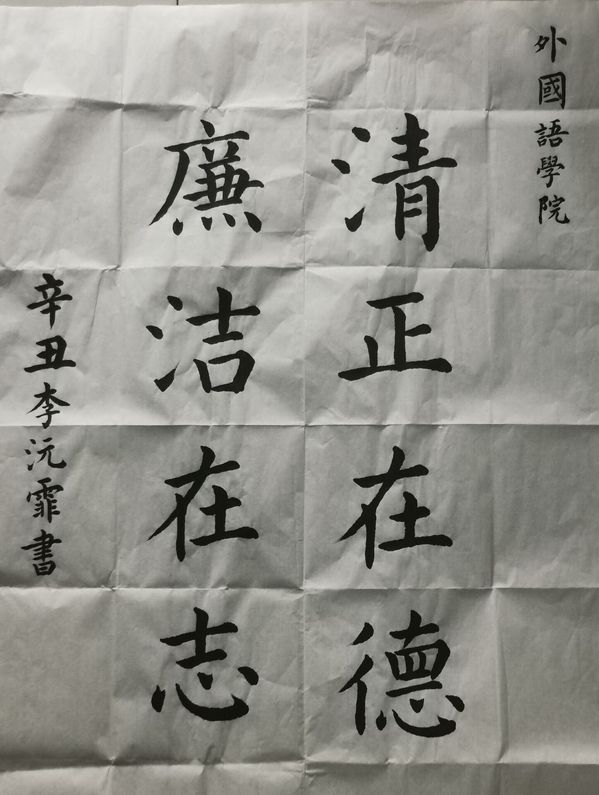 外國語學院
清正在德
廉洁在志
辛丑李沅霏書